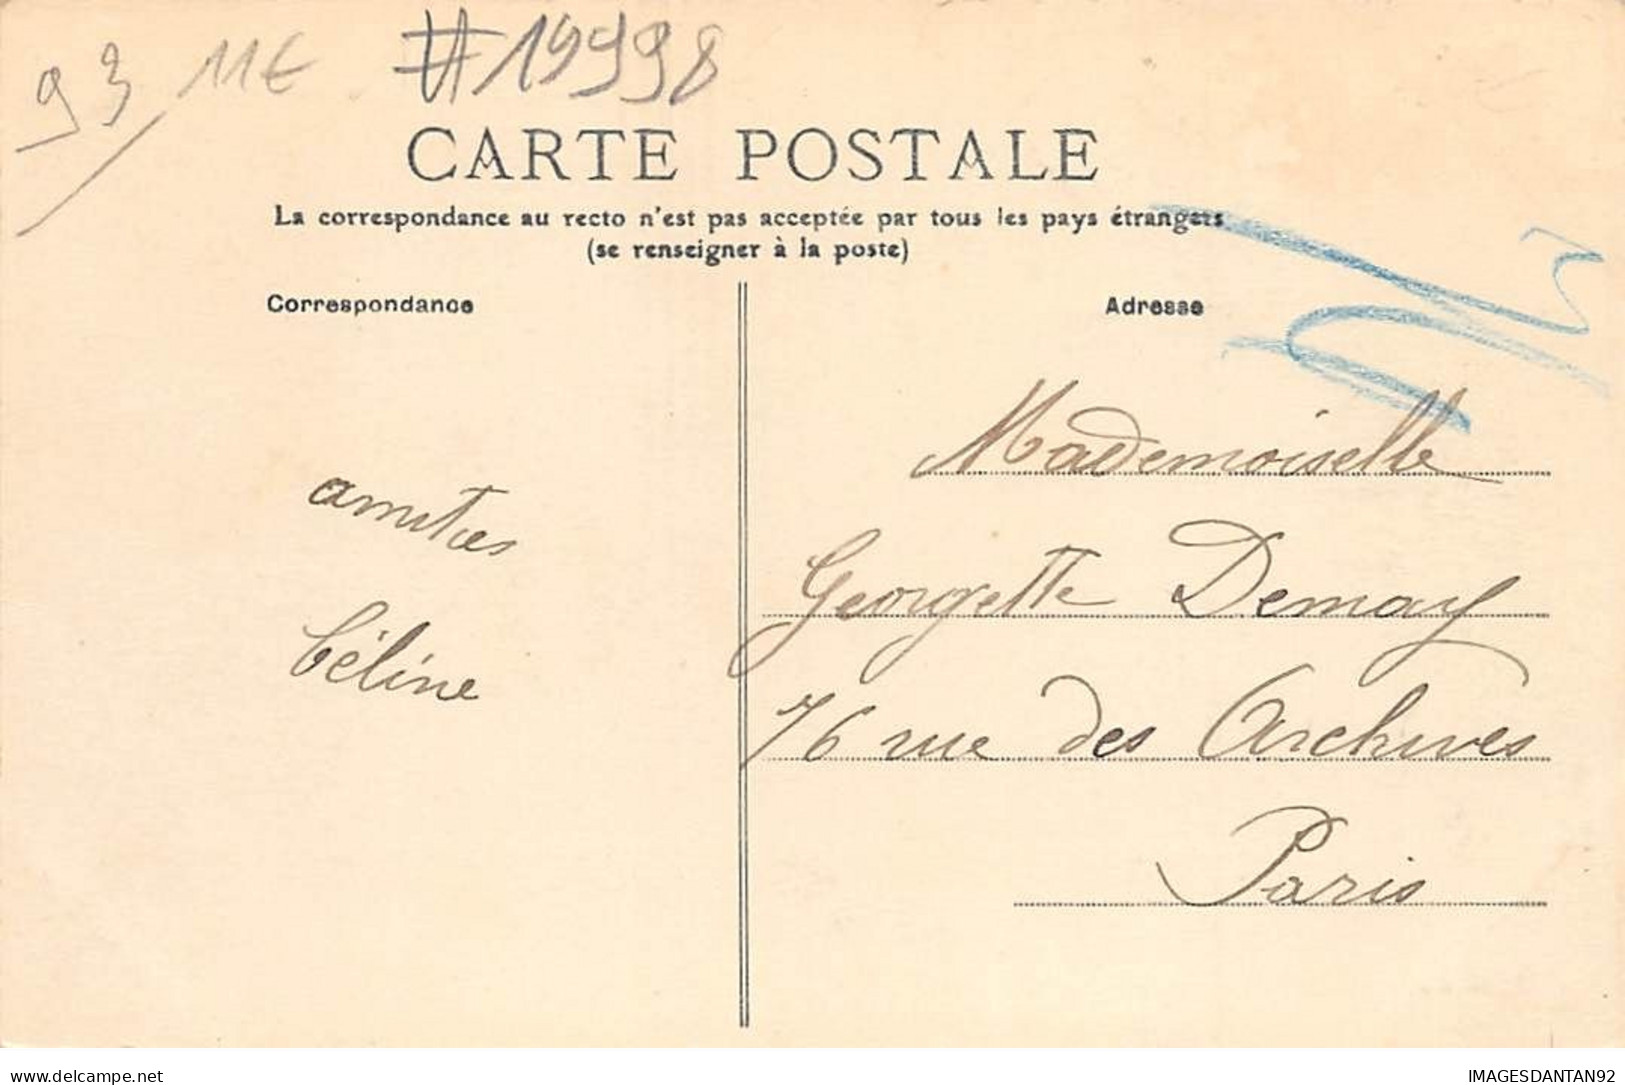 93 11€ #19998
CARTE POSTALE
La correspondance au recto n'est pas acceptée par tous les pays étrangers
(se renseigner à la poste)
Correspondance
Adresse
amitiés
Céline
Mademoiselle
Georgette Demay
76 rue des Archives
Paris
delcampe.net
IMAGESDANTAN92